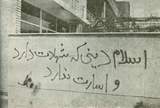 اسلام دینی که شهادت دارد
و اسارت ندارد